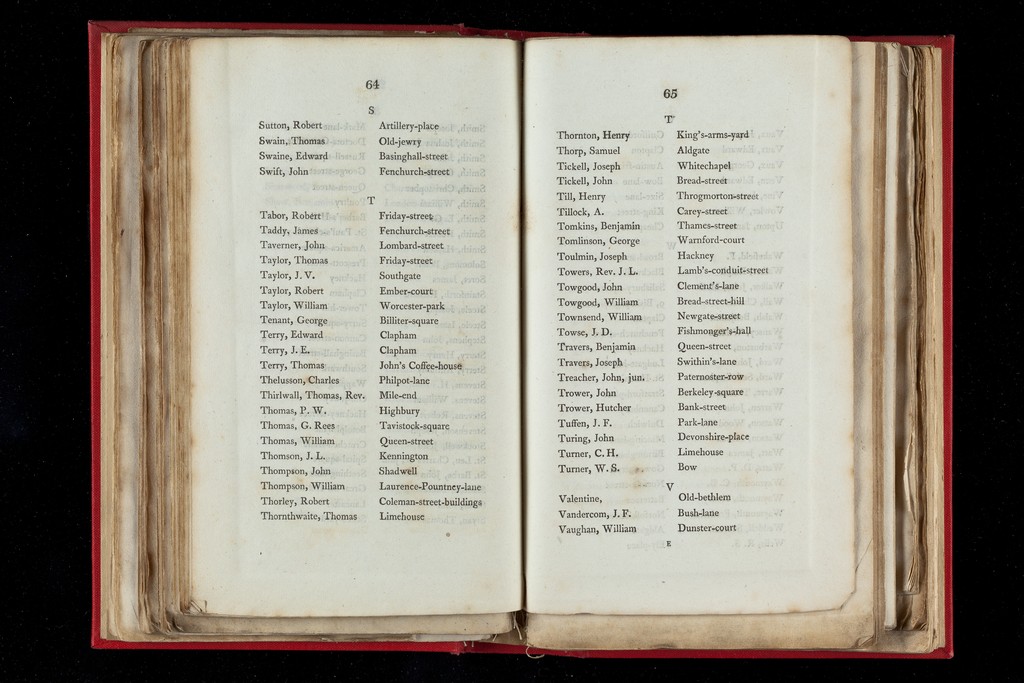 64
S
Sutton, Robert Artillery-place
Swain, Thomas Old-jewry
Swaine, Edward Basinghall-street
Swift, John Fenchurch-street
T
Tabor, Robert Friday-street
Taddy, James Fenchurch-street
Taverner, John Lombard-street
Taylor, Thomas Friday-street
Taylor, J. V. Southgate
Taylor, Robert Ember-court
Taylor, William Worcester-park
Tenant, George Billiter-square
Terry, Edward Clapham
Terry, J. E. Clapham
Terry, Thomas John's Coffee-house
Thelusson, Charles Philpot-lane
Thirlwall, Thomas, Rev. Mile-end
Thomas, P. W. Highbury
Thomas, G. Rees Tavistock-square
Thomas, William Queen-street
Thomson, J. L. Kennington
Thompson, John Shadwell
Thompson, William Laurence-Pountney-lane
Thorley, Robert Coleman-street-buildings
Thornthwaite, Thomas Limehouse
65
T
Thornton, Henry King's-arms-yard
Thorp, Samuel Aldgate
Tickell, Joseph Whitechapel
Tickell, John Bread-street
Till, Henry Throgmorton-street
Tillock, A. Carey-street
Tomkins, Benjamin Thames-street
Tomlinson, George Warnford-court
Toulmin, Joseph Hackney
Towers, Rev. J. L. Lamb's-conduit-street
Towgood, John Clement's-lane
Towgood, William Bread-street-hill
Townsend, William Newgate-street
Towse, J. D. Fishmonger's-hall
Travers, Benjamin Queen-street
Travers, Joseph Swithin's-lane
Treacher, John, jun. Paternoster-row
Trower, John Berkeley-square
Trower, Hutcher Bank-street
Tuffen, J. F. Park-lane
Turing, John Devonshire-place
Turner, C. H. Limehouse
Turner, W. S. Bow
V
Valentine, Old-bethlem
Vandercom, J. F. Bush-lane
Vaughan, William Dunster-court
E